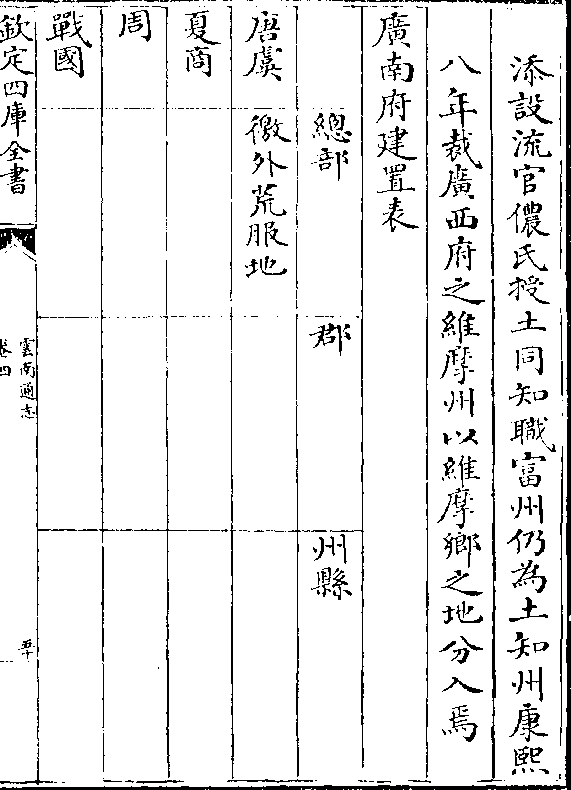 添設流官儂氏授土同知職富州仍為土知州康熙
八年裁廣西府之維摩州以維摩鄉之地分入焉
廣南府建置表
總部 郡 州縣
唐虞 徼外荒服地
夏商
周
戰國
欽定四庫全書
雲南通志
卷四